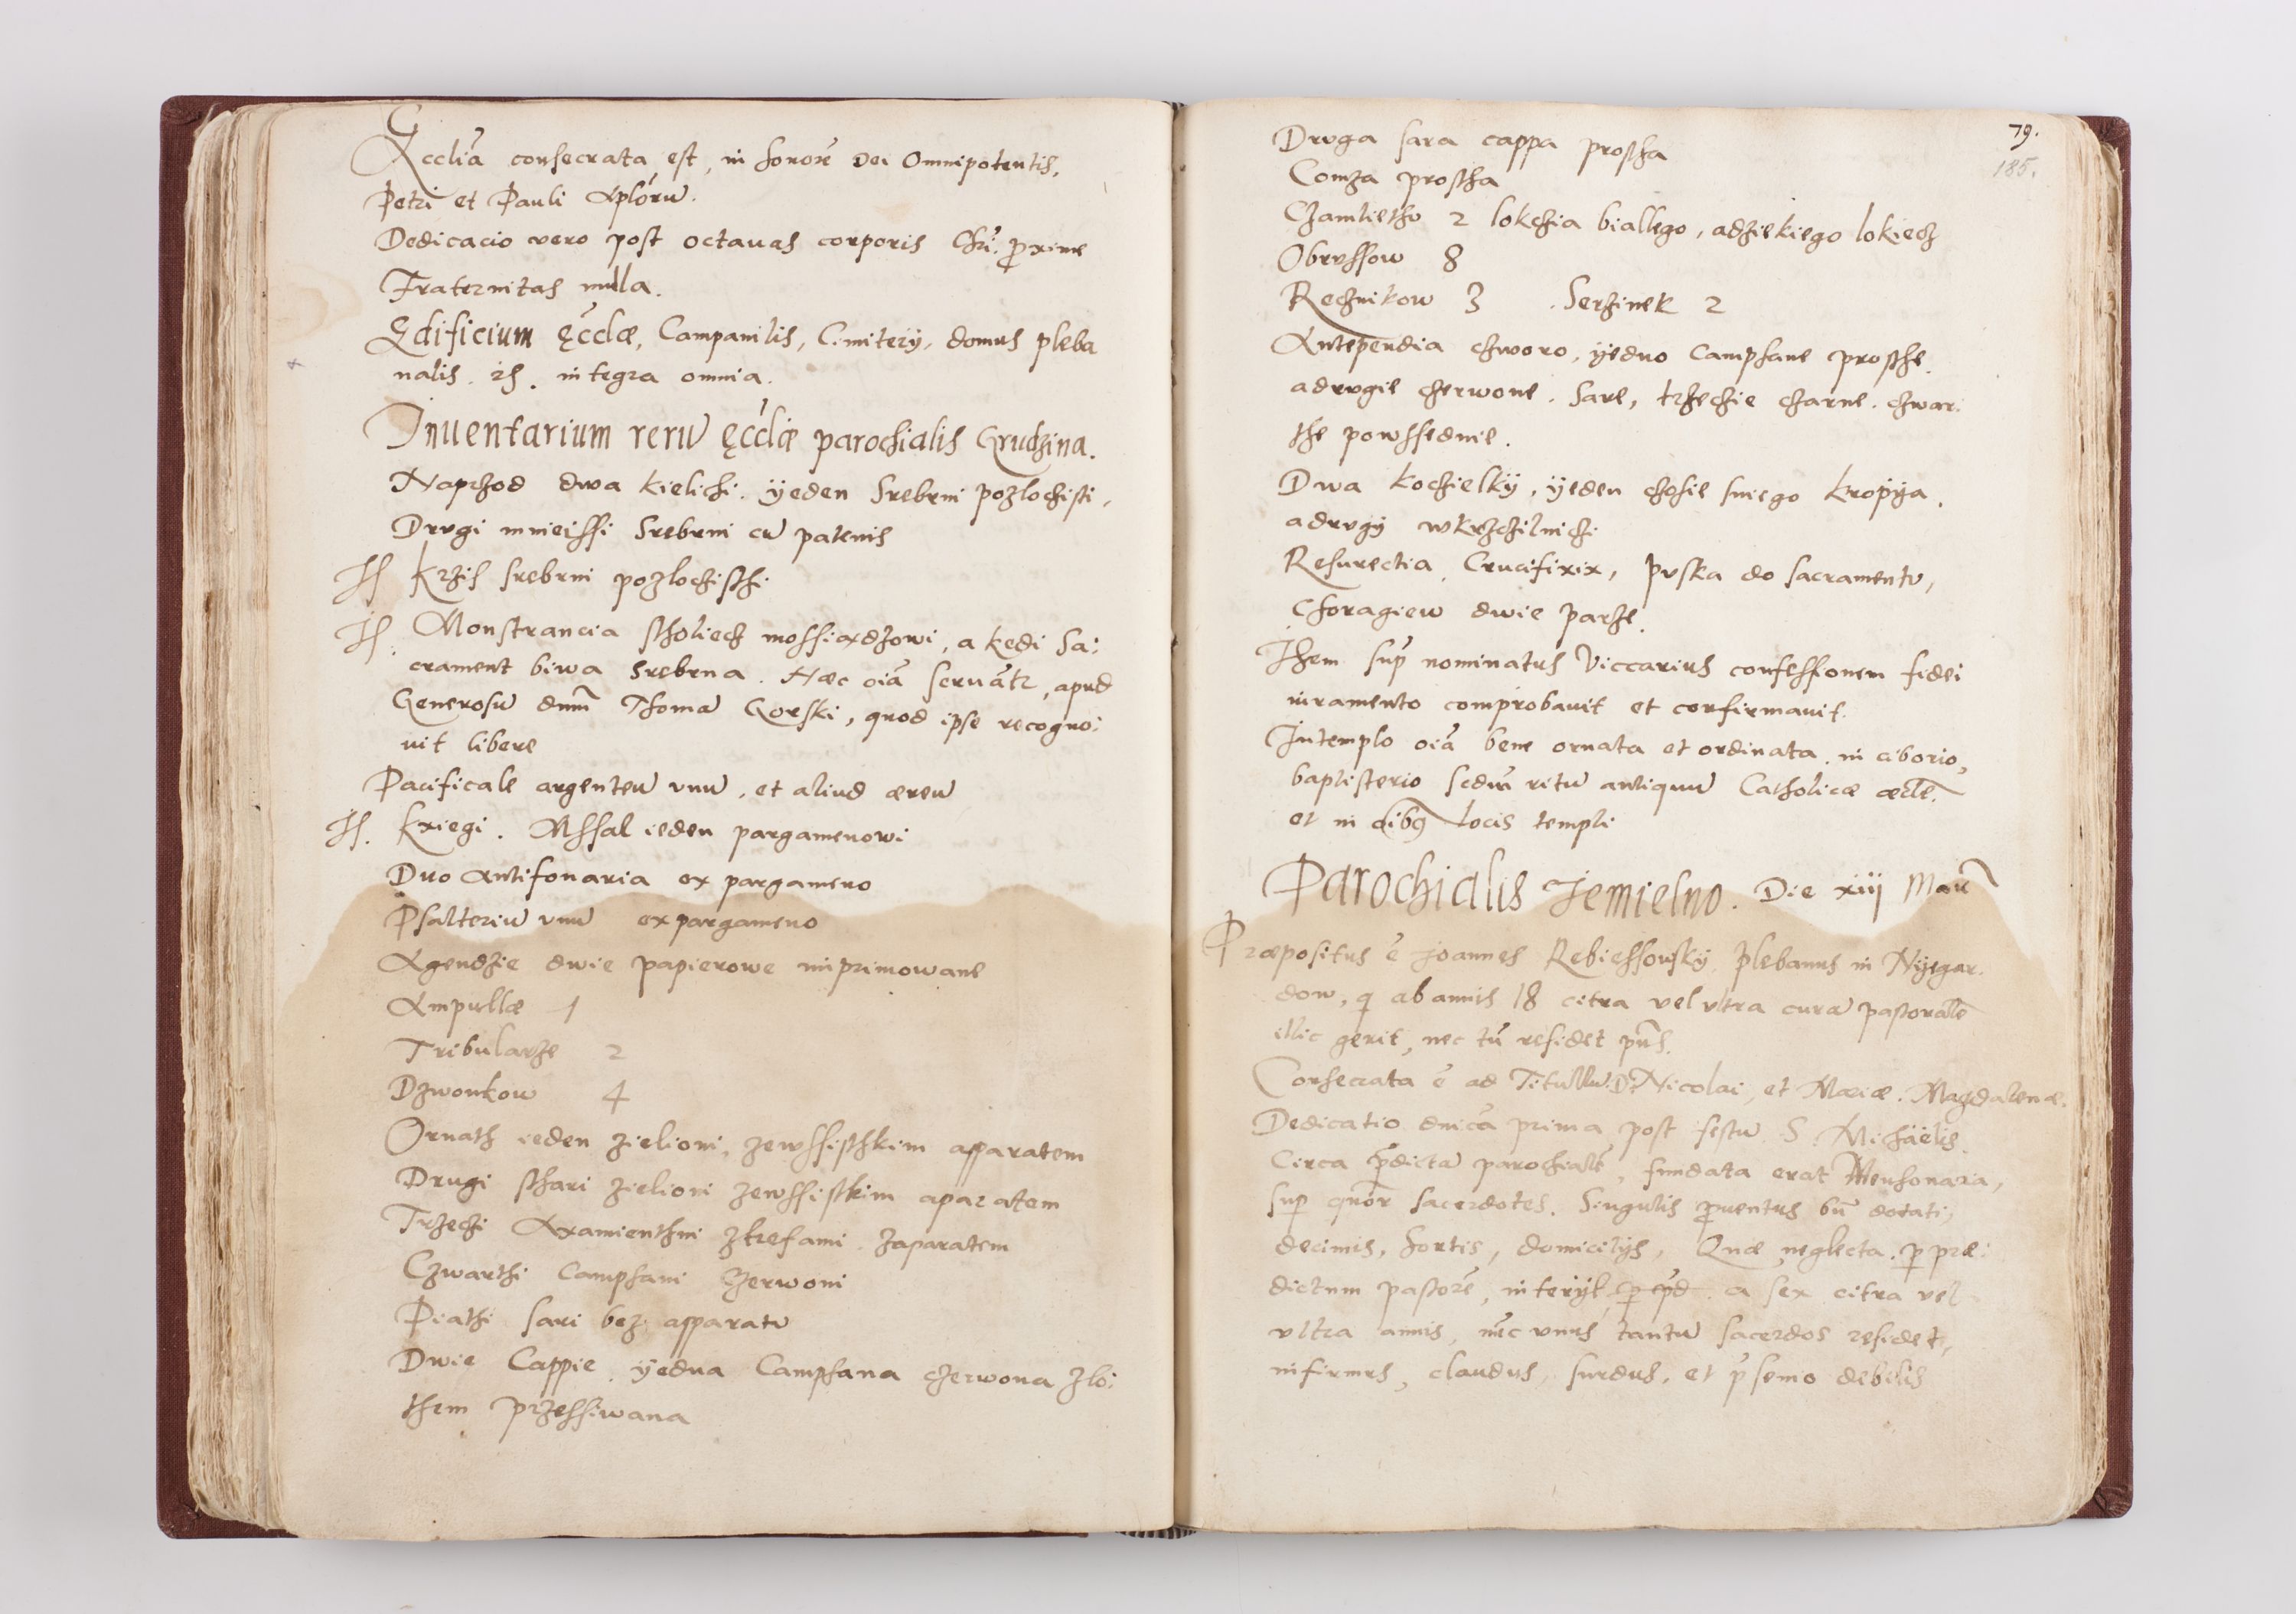 Ecclia consecrata est, in honore Dei Omnipotentis,
Petri et Pauli Aploru.
Dedicacio vero post octauas corporis Chri. proxime
Fraternitas nulla.
Ędificium ęcclæ, Campanilis, Cimitery, domus pleba
nalis. integra omnia.
Inuentarium reru ęccliæ parochialis Grudzina.
Naprzod dwa kielichi. ÿeden Srebrni pozlochisti,
Drvgi mnieissi Srebrni cu patenis
It Krzis srebrni pozlochisthi
It. Monstrancia stholiecz mossiaxdzowi, a kedi Sa:
crament biwa srebrna. Hæc oia seruatr, apud
Generosu dnm Thoma Gorski, quod ipse recogno:
uit libere
Pacificale argenteu vnu, et aliud æreu
It. Kxiegi. Mssal ieden pargamenowi
Duo Antifonaria ex pargameno
Psalteriu vnu ex pargameno
Agendzie dwie papierowe imprimowane
Ampullæ 1
Tribularze 2
Dzwonkow 4
Ornath ieden zielioni, zewssisthkim apparatem
Drugi sthari zielioni zewssistkim aparatem
Trzeczi Axamienthni ztrefami. zaparatem
Czwarthi Camphani Czerwoni
Piathi sari bez apparatu
Dwie Cappie. ÿedna Camphana czerwona zlo:
them przessiwana
79.
185.
Drvga sara cappa prostha
Comza prostha
Czamliethu 2 lokchia biallego, adzikiego lokiecz
Obrvssow 8
Recznikow 3 . Serzinek 2
Antependia czworo, ÿedno Camphane prosthe.
adrvgie czerwone. Sare, trzeczie czarne. czwar:
the powssednie.
Dwa Kochielkÿ, ÿeden chosie sniego kropÿa.
adrvgÿ wkrzczilnichi
Resurectia, Crucifixix, pvska do sacramentv,
Choragiew dwie parze.
Ithem sup nominatus Viccarius confessionem fidei
iuramento comprobauit et confirmauit.
Intemplo oia bene ornata et ordinata. in ciborio,
baptisterio scdm ritu antiquu Catholicæ æccle.
et in oibs locis templi
Parochialis Jemielno. Die xiij Maii
Præpositus e Joannes Rebiessowsky, plebanus in Nÿegar:
dow, q ab annis 18 citra vel vltra cura pastorale
illic gerit, nec tn residet pns.
Consecrata e ad Titullu D: Nicolai, et Mariæ. Magdalenæ.
Dedicatio dnica prima post festu S. Michäelis.
Circa pdicta parochiale, fundata erat Mensonaria,
sup qnor sacerdotes. Singulis prouentus bn dotati,
decimis, hortis, domicilijs, Quæ neglecta. p præ:
dictum pastore, interijt, a sex citra vel
vltra annis, nuc vnus tantu sacerdos residet,
infirmus, claudus, surdus, et p senio debilis